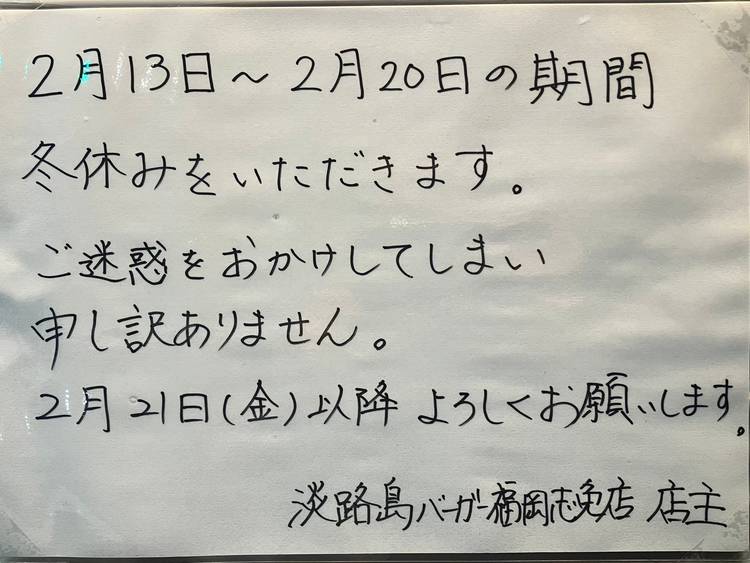 2月13日～2月20日の期間
冬休みをいただきます。
ご迷惑をおかけしてしまい
申し訳ありません。
2月21日(金)以降 よろしくお願いします。
淡路島バーガー福岡志免店 店主